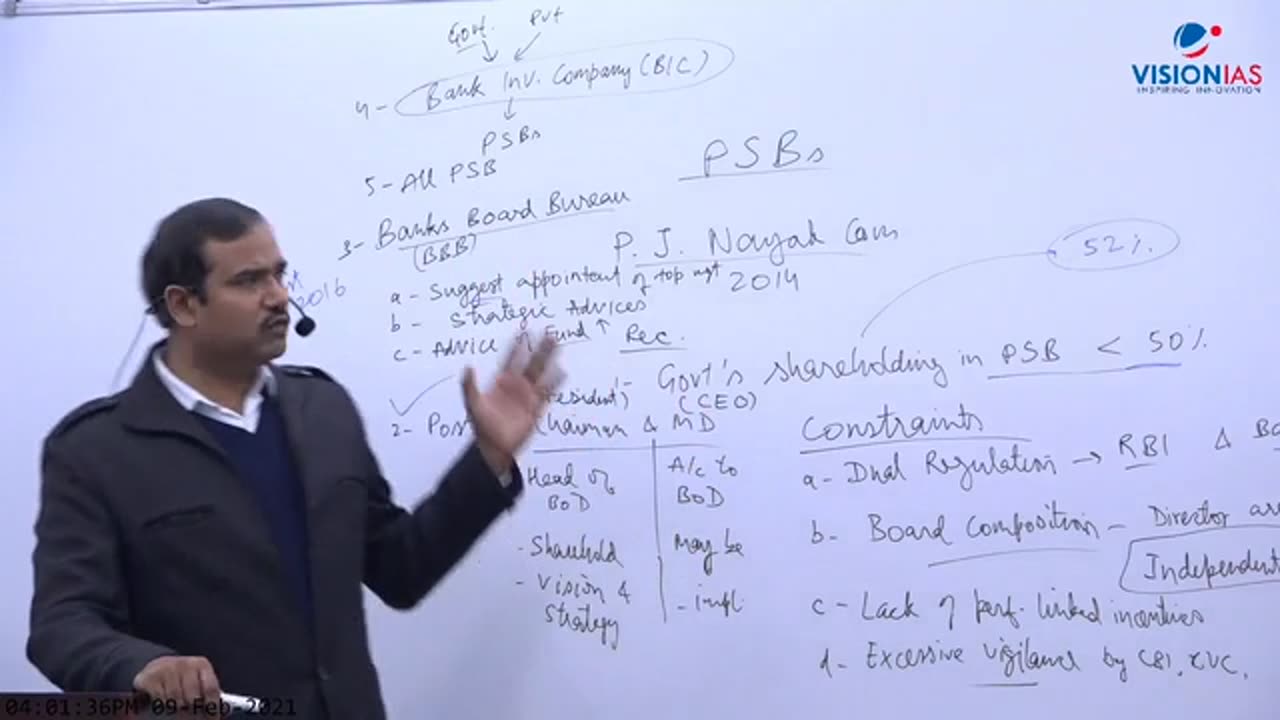 Govt. Pvt
4- Bank Inv. Company (BIC)
PSBs
5- All PSB
3- Banks Board Bureau
(BBB)
a- Suggest appointent of top mgt
b- Strategic Advices
c- Advice Fund ↑
2016
PSBs
P. J. Nayak Com
2014
Rec.
52%.
Govt's shareholding in PSB < 50%
2- Post Chairman & MD
(CEO)
Head of BoD
A/c to BoD
- Sharehold
May be
- Vision & Strategy
- impl.
Constraints
a- Dual Regulation → RBI &
b- Board Composition - Director are
Independent
c- Lack of perf. linked incentives
d- Excessive vigilance by CBI, CVC,
VISIONIAS
INSPIRING INNOVATION
04:01:36PM 09-Feb-2021